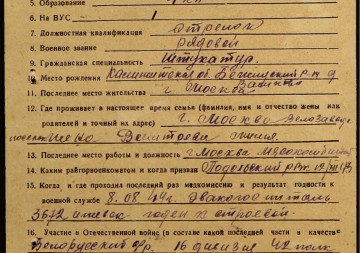 5. Образование
6. На ВУС №
7. Должностная квалификация стрелок
8. Военное звание рядовой
9. Гражданская специальность Штукатур.
10. Место рождения Калининская об. р-н д
11. Последнее место жительства г Москва
12. Где проживает в настоящее время семья (фамилия, имя и отчество жены или
родителей и точный их адрес) г. Москва
13. Последнее место работы и должность г Москва
14. Каким райгорвоенкоматом и когда призван Подольский РВК
15. Когда и где проходил последний раз медкомиссию и результат годности к
военной службе 8.08.44г. Эвакогоспиталь
3672 годен к строевой.
16. Участие в Отечественной войне (в составе какой последней части в качестве
Белорусский фр. 16 дивизия 42 полк